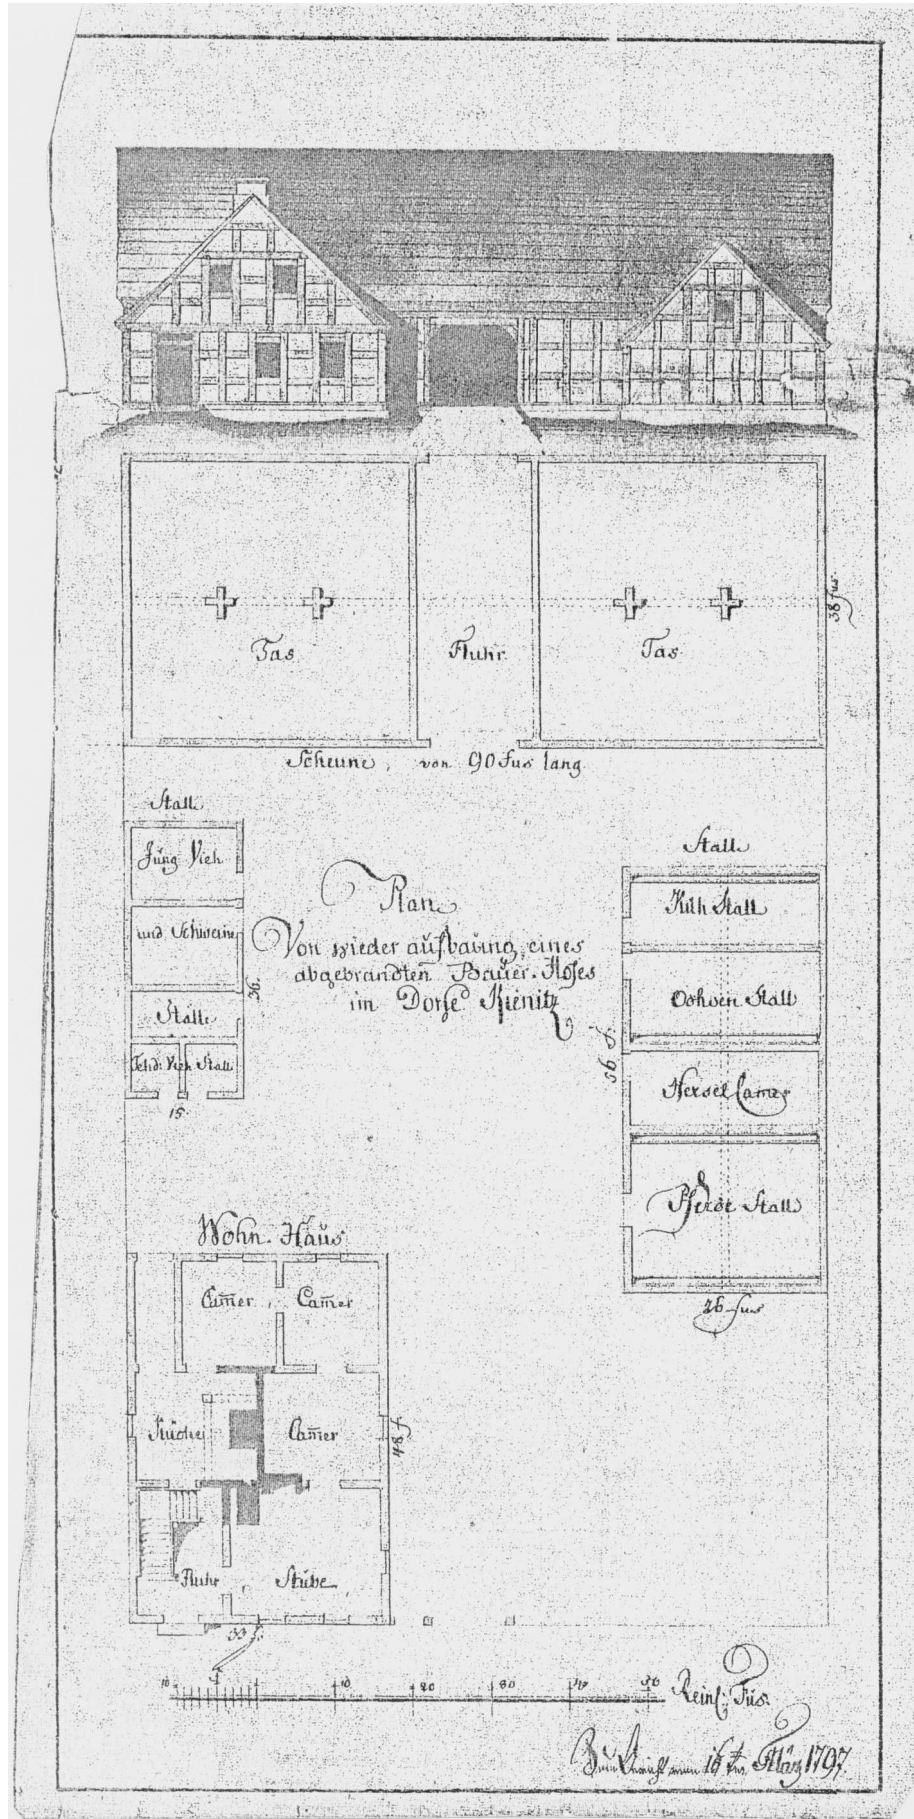 Tas
Fluhr
Tas
38 fus.
Scheune, von 90 Fus lang
Stall
Jüng Vieh
und Schweine
Stall
Fehd: Vieh Stall
36.
15.
Plan
Von wieder aufbauung eines
abgebrandten Bauer-Hofes
im Dorfe Kienitz
Stall
Küh Stall
Ochsen Stall
Hexsel Camer
Pferde Stall
56 f.
26 fus
Wohn-Haus
Camer, Camer
Küche Camer
48 f
Fluhr, Stube
33 f.
10 5 10 20 30 40 50 Reinl: Fus.
Zum Bericht vom 16 März 1797.